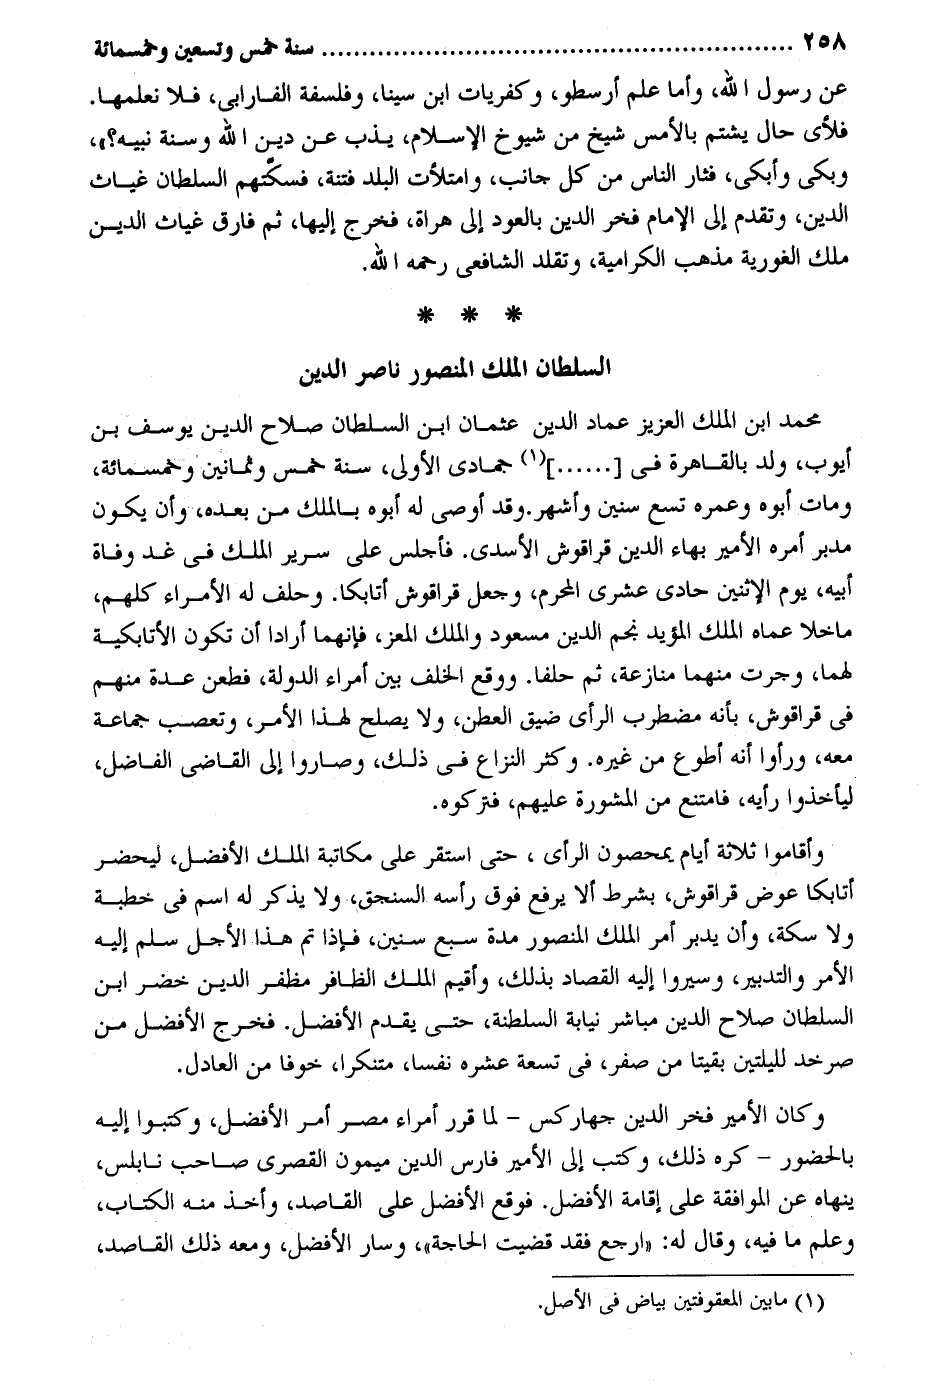 ٢٥٨ ................................................................ سنة خمس وتسعين وخمسمائة
عن رسول الله، وأما علم أرسطو، وكفريات ابن سينا، وفلسفة الفارابى، فلا نعلمها.
فلأى حال يشتم بالأمس شيخ من شيوخ الإسلام، يذب عن دين الله وسنة نبيه؟»،
وبكى وأبكى، فثار الناس من كل جانب، وامتلأت البلد فتنة، فسكّتهم السلطان غياث
الدين، وتقدم إلى الإمام فخر الدين بالعود إلى هراة، فخرج إليها، ثم فارق غياث الدين
ملك الغورية مذهب الكرامية، وتقلد الشافعى رحمه الله.
* * *
السلطان الملك المنصور ناصر الدين
محمد ابن الملك العزيز عماد الدين عثمان ابن السلطان صلاح الدين يوسف بن
أيوب، ولد بالقاهرة فى [......](١) جمادى الأولى، سنة خمس وثمانين وخمسمائة،
ومات أبوه وعمره تسع سنين وأشهر.وقد أوصى له أبوه بالملك من بعده، وأن يكون
مدبر أمره الأمير بهاء الدين قراقوش الأسدى. فأجلس على سرير الملك فى غد وفاة
أبيه، يوم الإثنين حادى عشرى المحرم، وجعل قراقوش أتابكا. وحلف له الأمراء كلهم،
ماخلا عماه الملك المؤيد نجم الدين مسعود والملك المعز، فإنهما أرادا أن تكون الأتابكية
لهما، وجرت منهما منازعة، ثم حلفا. ووقع الخلف بين أمراء الدولة، فطعن عدة منهم
فى قراقوش، بأنه مضطرب الرأى ضيق العطن، ولا يصلح لهذا الأمر، وتعصب جماعة
معه، ورأوا أنه أطوع من غيره. وكثر النزاع فى ذلك، وصاروا إلى القاضى الفاضل،
ليأخذوا رأيه، فامتنع من المشورة عليهم، فتركوه.
وأقاموا ثلاثة أيام يمحصون الرأى ، حتى استقر على مكاتبة الملك الأفضل، ليحضر
أتابكا عوض قراقوش، بشرط ألا يرفع فوق رأسه السنجق، ولا يذكر له اسم فى خطبة
ولا سكة، وأن يدبر أمر الملك المنصور مدة سبع سنين، فإذا تم هذا الأجل سلم إليه
الأمر والتدبير، وسيروا إليه القصاد بذلك، وأقيم الملك الظافر مظفر الدين خضر ابن
السلطان صلاح الدين مباشر نيابة السلطنة، حتى يقدم الأفضل. فخرج الأفضل من
صرخد لليلتين بقيتا من صفر، فى تسعة عشره نفسا، متنكرا، خوفا من العادل.
وكان الأمير فخر الدين جهاركس – لما قرر أمراء مصر أمر الأفضل، وكتبوا إليه
بالحضور – كره ذلك، وكتب إلى الأمير فارس الدين ميمون القصرى صاحب نابلس،
ينهاه عن الموافقة على إقامة الأفضل. فوقع الأفضل على القاصد، وأخذ منه الكتاب،
وعلم ما فيه، وقال له: «ارجع فقد قضيت الحاجة»، وسار الأفضل، ومعه ذلك القاصد،
(١) مابين المعقوفتين بياض فى الأصل.